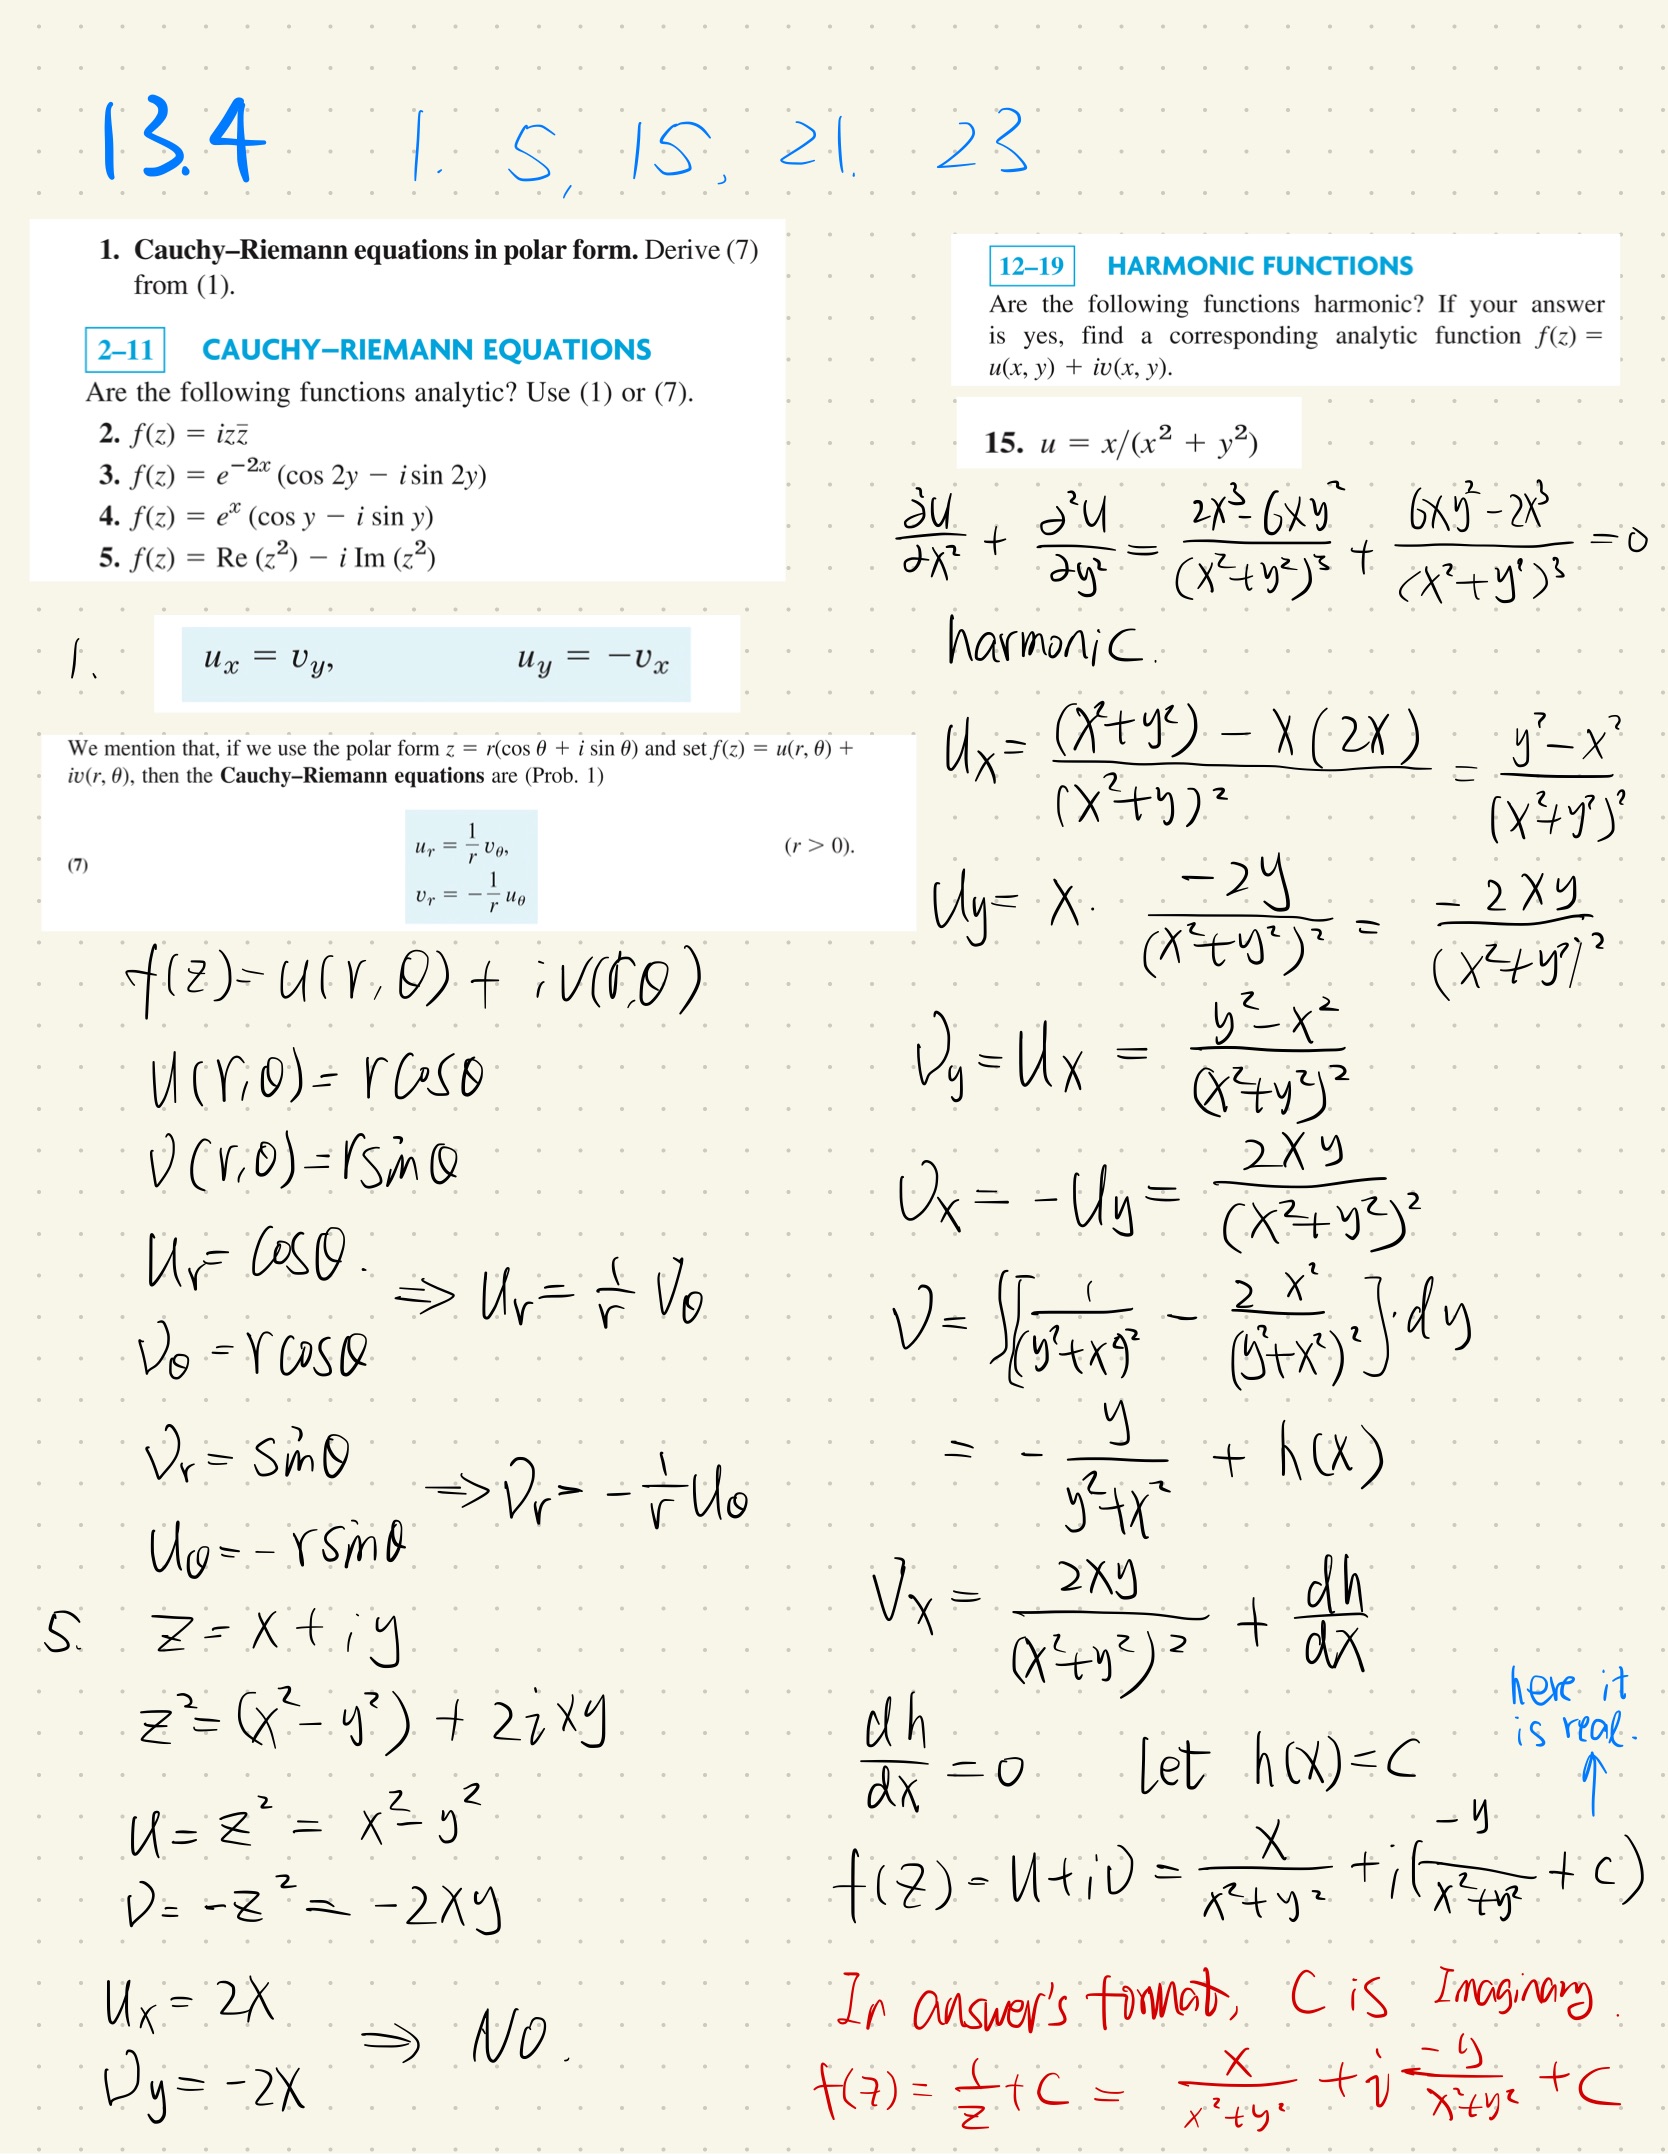 13.4 1. 5, 15, 21. 23
1. Cauchy–Riemann equations in polar form. Derive (7)
from (1).
2–11 CAUCHY–RIEMANN EQUATIONS
Are the following functions analytic? Use (1) or (7).
2. f(z) = izz̄
3. f(z) = e⁻²ˣ (cos 2y − i sin 2y)
4. f(z) = eˣ (cos y − i sin y)
5. f(z) = Re (z²) − i Im (z²)
1. uₓ = v_y, u_y = −vₓ
We mention that, if we use the polar form z = r(cos θ + i sin θ) and set f(z) = u(r, θ) +
iv(r, θ), then the Cauchy–Riemann equations are (Prob. 1)
u_r = 1/r v_θ,
(7) (r > 0).
v_r = −1/r u_θ
f(z) = u(r, θ) + iv(r, θ)
u(r, θ) = r cosθ
v(r, θ) = r sinθ
u_r = cosθ. ⇒ u_r = 1/r v_θ
v_θ = r cosθ
v_r = sinθ ⇒ v_r = −1/r u_θ
u_θ = −r sinθ
5. z = x + iy
z² = (x² − y²) + 2ixy
u = z² = x² − y²
v = −z² = −2xy
uₓ = 2x ⇒ NO.
v_y = −2x
12–19 HARMONIC FUNCTIONS
Are the following functions harmonic? If your answer
is yes, find a corresponding analytic function f(z) =
u(x, y) + iv(x, y).
15. u = x/(x² + y²)
∂²u/∂x² + ∂²u/∂y² = (2x³ − 6xy²)/(x² + y²)³ + (6xy² − 2x³)/(x² + y²)³ = 0
harmonic.
uₓ = ((x² + y²) − x(2x))/(x² + y)² = (y² − x²)/(x² + y²)²
u_y = x · −2y/(x² + y²)² = −2xy/(x² + y²)²
v_y = uₓ = (y² − x²)/(x² + y²)²
vₓ = −u_y = 2xy/(x² + y²)²
v = ∫[1/(y² + x²)² − 2x²/(y² + x²)²]·dy
= −y/(y² + x²) + h(x)
vₓ = 2xy/(x² + y²)² + dh/dx
here it
is real.
↑
dh/dx = 0 Let h(x) = C
f(z) = u + iv = x/(x² + y²) + i(−y/(x² + y²) + C)
In answer's format, C is Imaginary.
f(z) = 1/z + C = x/(x² + y²) + i −y/(x² + y²) + C